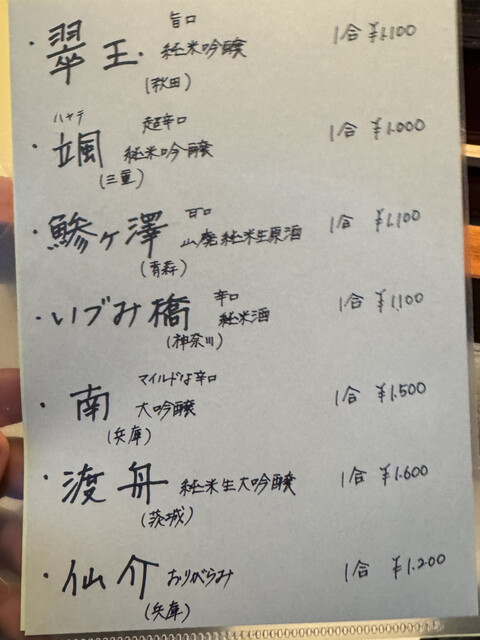 旨口
・翠玉. 純米吟醸 1合 ¥1,100
(秋田)
ハヤテ 超辛口
・颯 純米吟醸 1合 ¥1,000
(三重)
甘口
・鰺ヶ澤 山廃純米生原酒 1合 ¥1,100
(青森)
辛口
・いづみ橋 純米酒 1合 ¥1,100
(神奈川)
マイルドな辛口
・南 大吟醸 1合 ¥1,500
(兵庫)
・渡舟 純米生大吟醸 1合 ¥1,600
(茨城)
・仙介 おりがらみ 1合 ¥1,200
(兵庫)